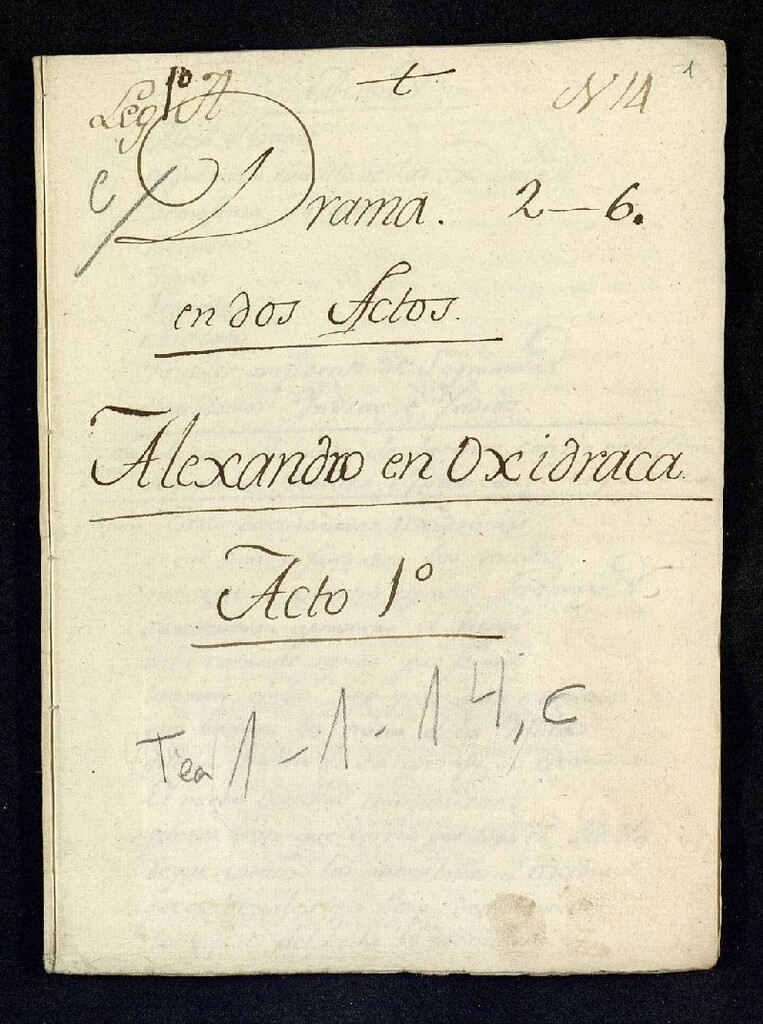 Leg 1º A t N 14 1
C/ Drama. 2-6.
en dos Actos.
Alexandro en Oxidraca.
Acto 1º
Tea 1-1-14, C